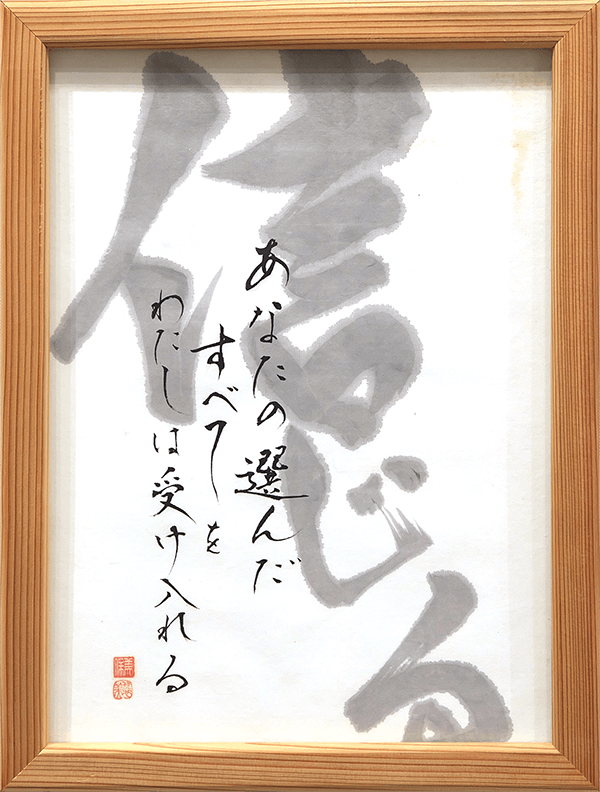 信じる
あなたの選んだ
すべてを
わたしは受け入れる